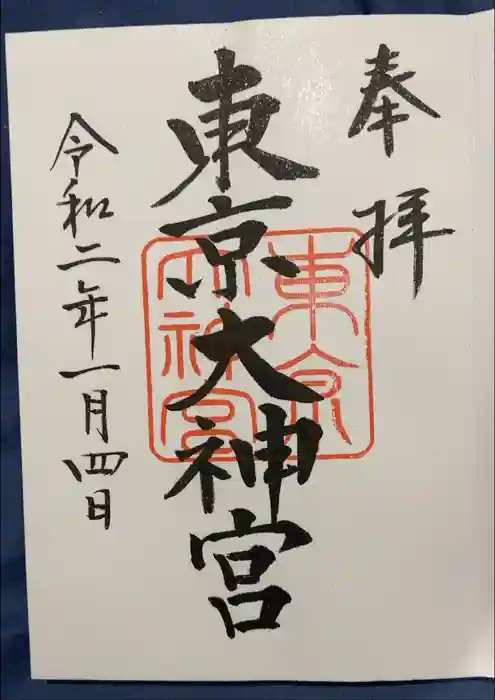 奉拝
東京大神宮
東京
大神宮
令和二年一月四日